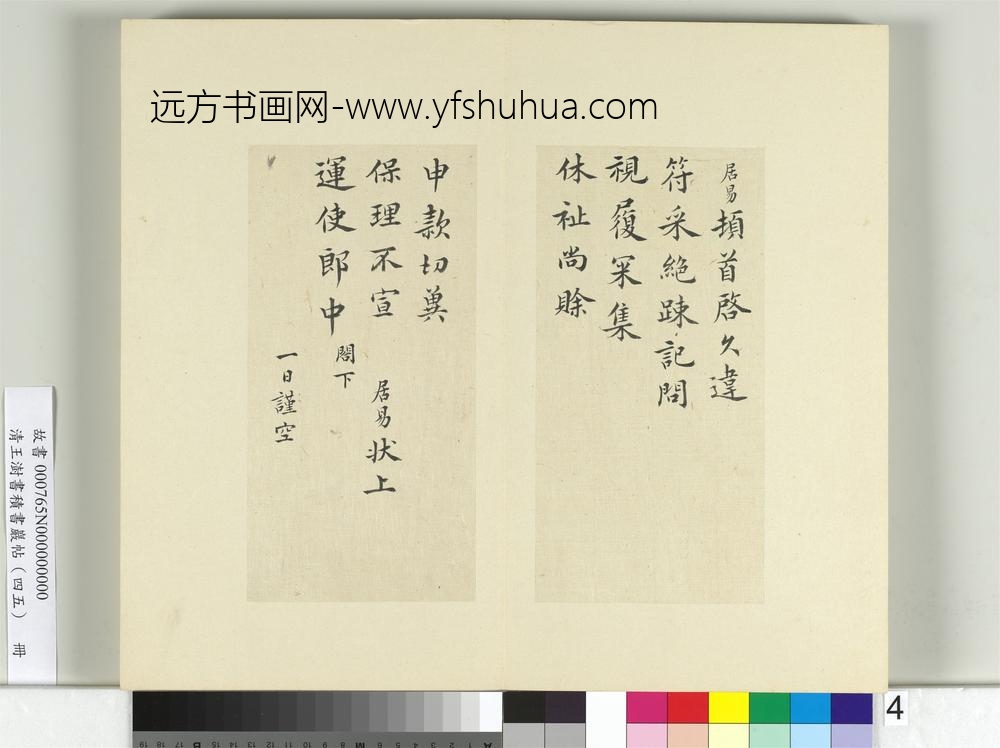 远方书画网-www.yfshuhua.com
居易頓首啓久違
符采絶踈記問
視履冞集
休祉尚賒
申款切冀
保理不宣 居易状上
運使郎中 閤下
一日謹空
故書 000765N000000000
清王澍書積書巖帖（四五） 冊
4